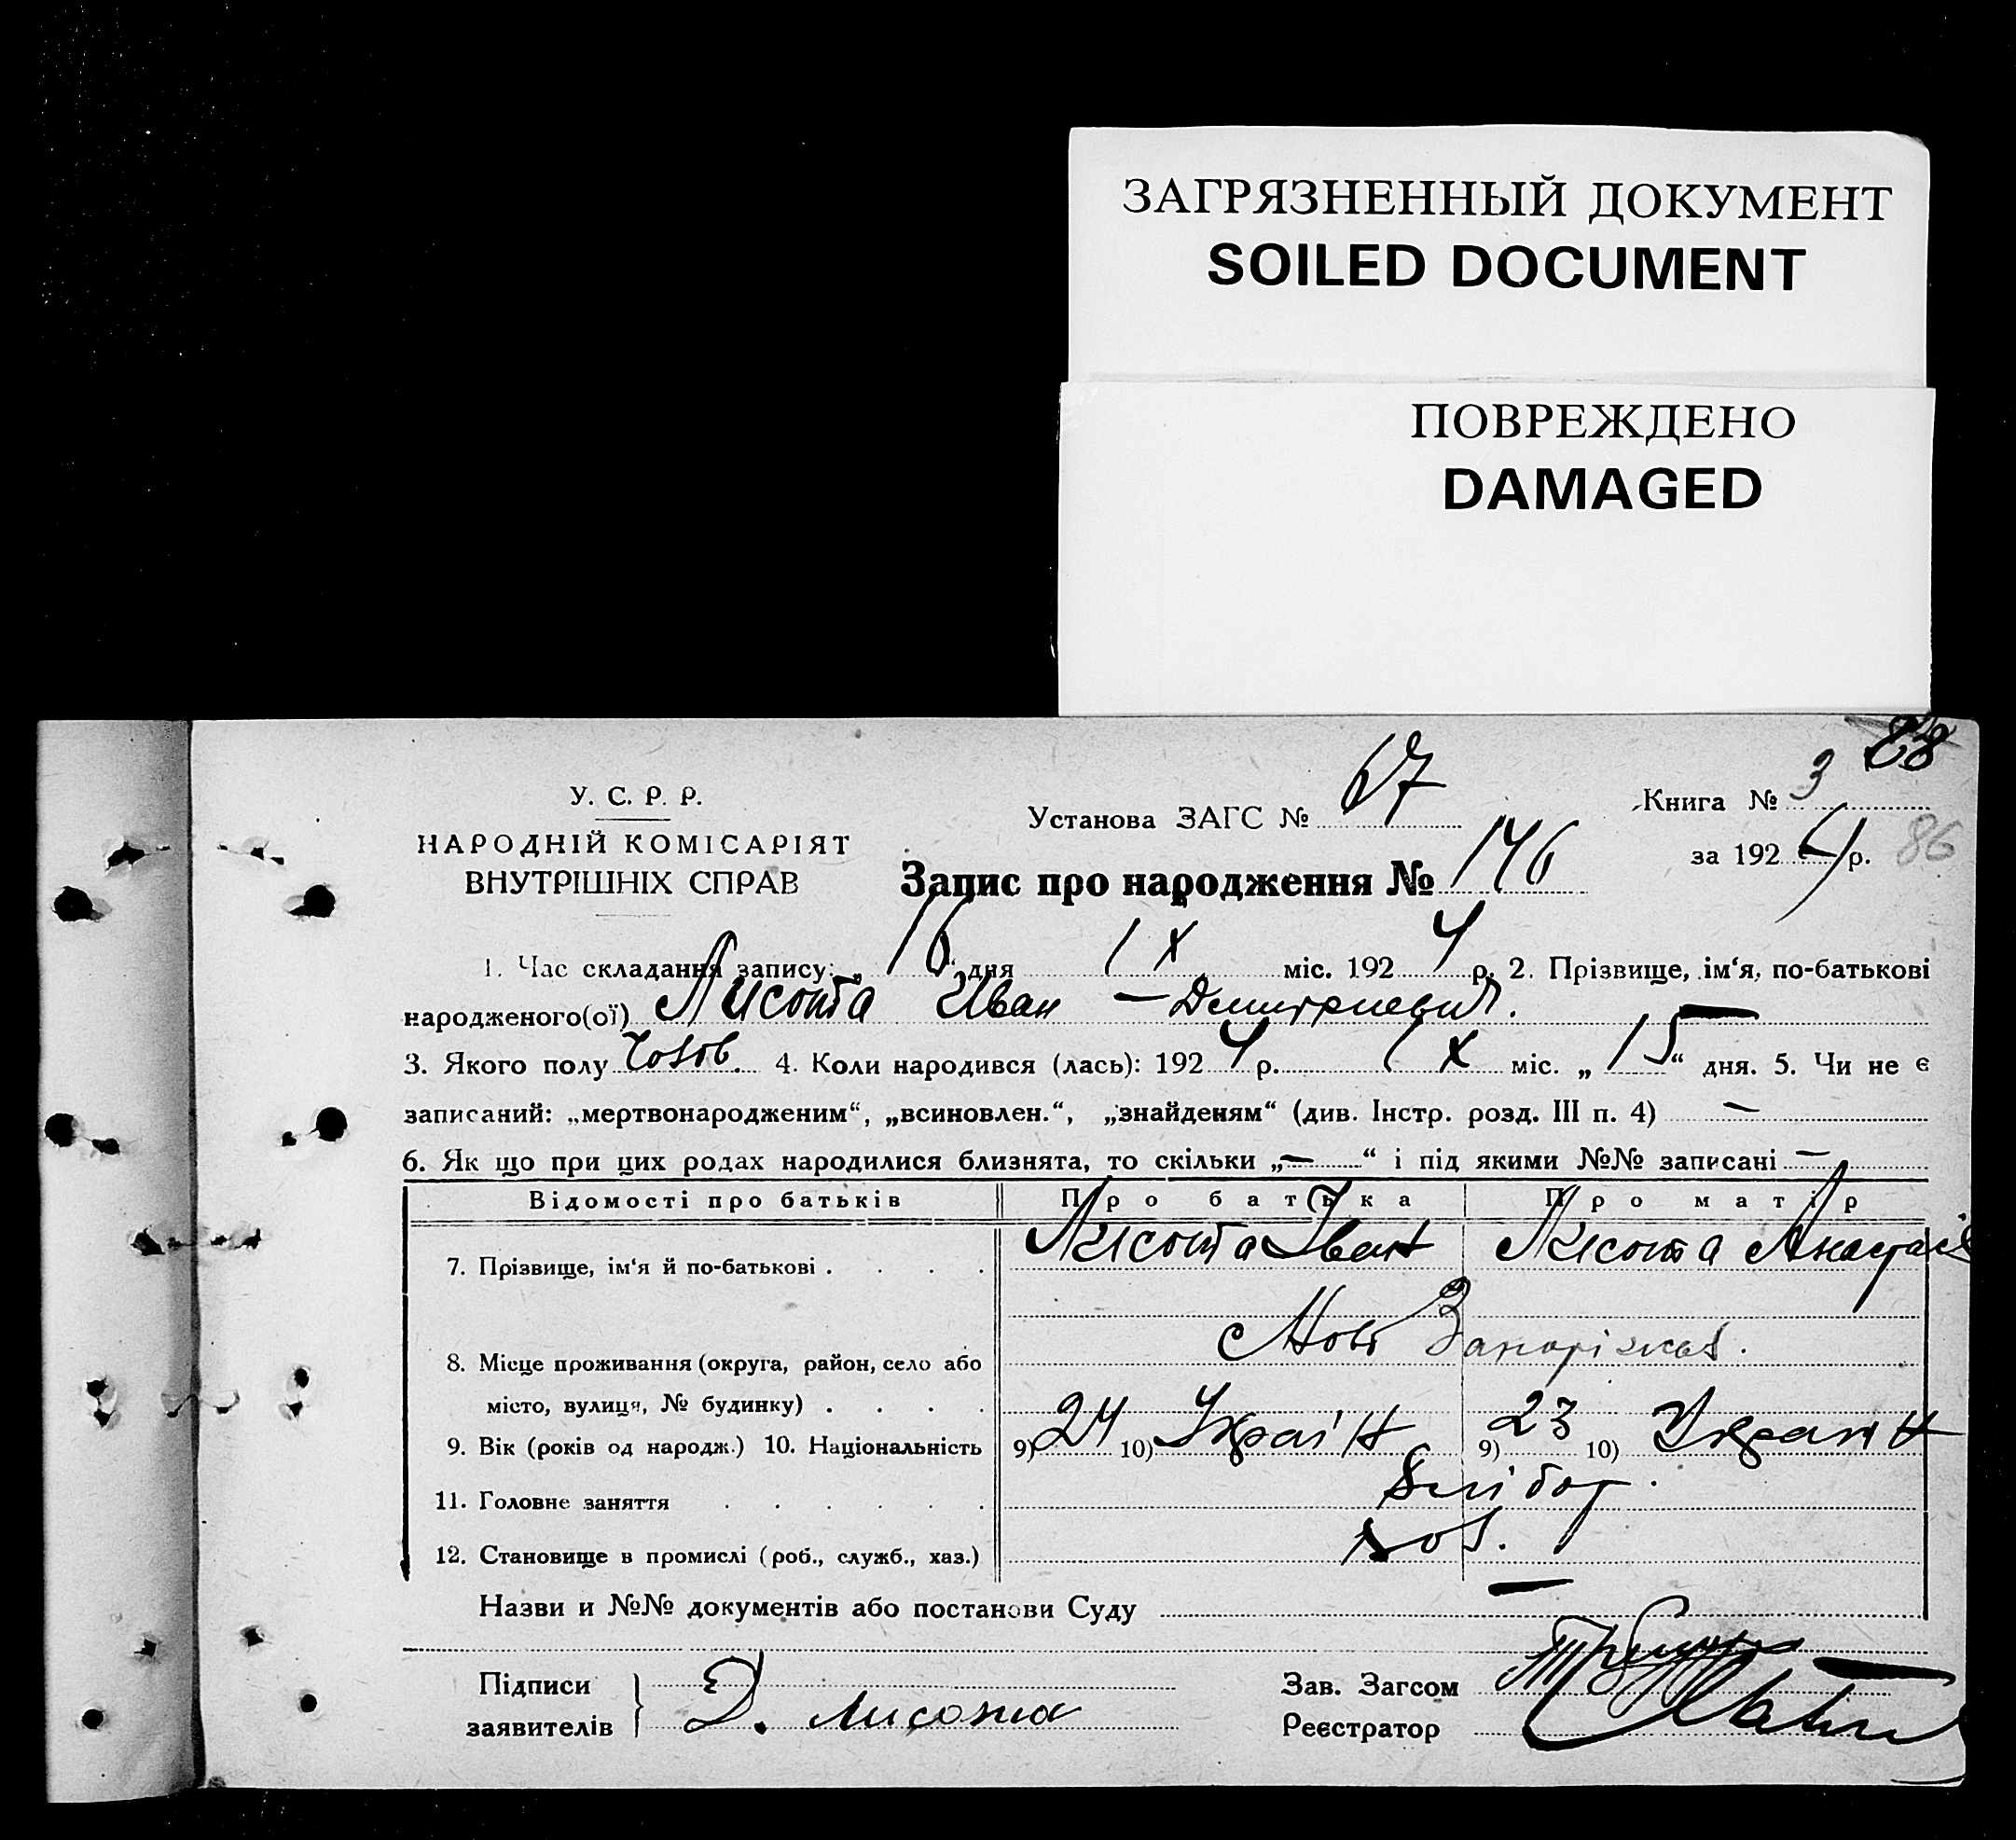 ЗАГРЯЗНЕННЫЙ ДОКУМЕНТ
SOILED DOCUMENT
ПОВРЕЖДЕНО
DAMAGED
88
У. С. Р. Р.
НАРОДНІЙ КОМІСАРІЯТ
ВНУТРІШНІХ СПРАВ
Установа ЗАГС № 67
Книга № 3
за 1924 р. 86
Запис про народження № 146
1. Час складання запису: „16“ дня IX міс. 1924 р. 2. Прізвище, ім‘я, по-батькові
народженого(ої) Лисота Иван — Дмитриевич.
3. Якого полу Чолов. 4. Коли народився (лась): 1924 р. IX міс. „15“ дня. 5. Чи не є
записаний: „мертвонародженим“, „всиновлен.“, „знайденям“ (див. Інстр. розд. III п. 4) —
6. Як що при цих родах народилися близнята, то скільки „—“ і під якими №№ записані —
Відомості про батьків Про батька Про матір
7. Прізвище, ім‘я й по-батькові . . . . Лисота Иван Лисота Анастасія
8. Місце проживання (округа, район, село або Ново Запоріжжя.
місто, вулиця, № будинку) . . . .
9. Вік (років од народж.) 10. Національність 9) 24 10) Украін 9) 23 10) Украин
11. Головне заняття . . . . . . Хлібор.
12. Становище в промислі (роб., служб., хаз.) хоз.
Назви и №№ документів або постанови Суду —
Підписи
заявителів Д. Лисота
Зав. Загсом
Реєстратор